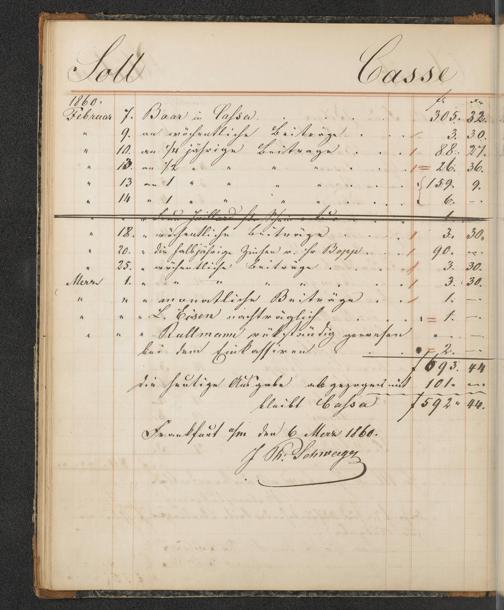 Soll Casse
1860. fr. xr.
Februar 7. Baar in Cassa 305. 32.
" 9. an wöchentliche Beiträge 3. 30.
" 10. an 1/4 jährige Beiträge 88. 27.
" 13. an 1/2 " " " 26. 36.
" 13 an 1 " " " 159. 9.
" 14 " 1 " " " 6. —
" 18. " wöchentliche Beiträge 3. 30.
" 20. " die halbjährige Zinsen v. Bopp 90. —
" 25. " wöchentliche Beiträge 3. 30
Merz 1. " " " " 3. 30.
" " " monatliche Beiträge 1. —
" " " L. Eisen nachträglich 1. —
" " " Rullmann rückständig gewesen
bei dem Einkassiren 2. —
f 693. 44
die heutige Ausgabe abgezogen mit 101. —
bleibt Cassa f 592. 44.
Frankfurt a/m den 6 Merz 1860.
J Th. Schweiger